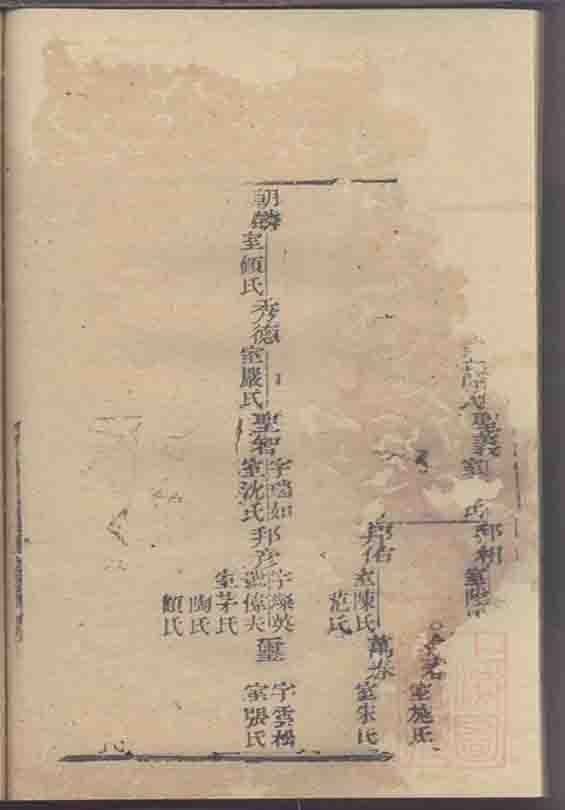 聖義
室
邦相
室施氏
邦佑
室陳氏
范氏
萬春
室朱氏
朝麟
室顧氏
秀德
室嚴氏
聖智
字瑞如
室沈氏
邦彥
字燦英
號偉夫
室茅氏
陶氏
顧氏
璽
字雲松
室張氏